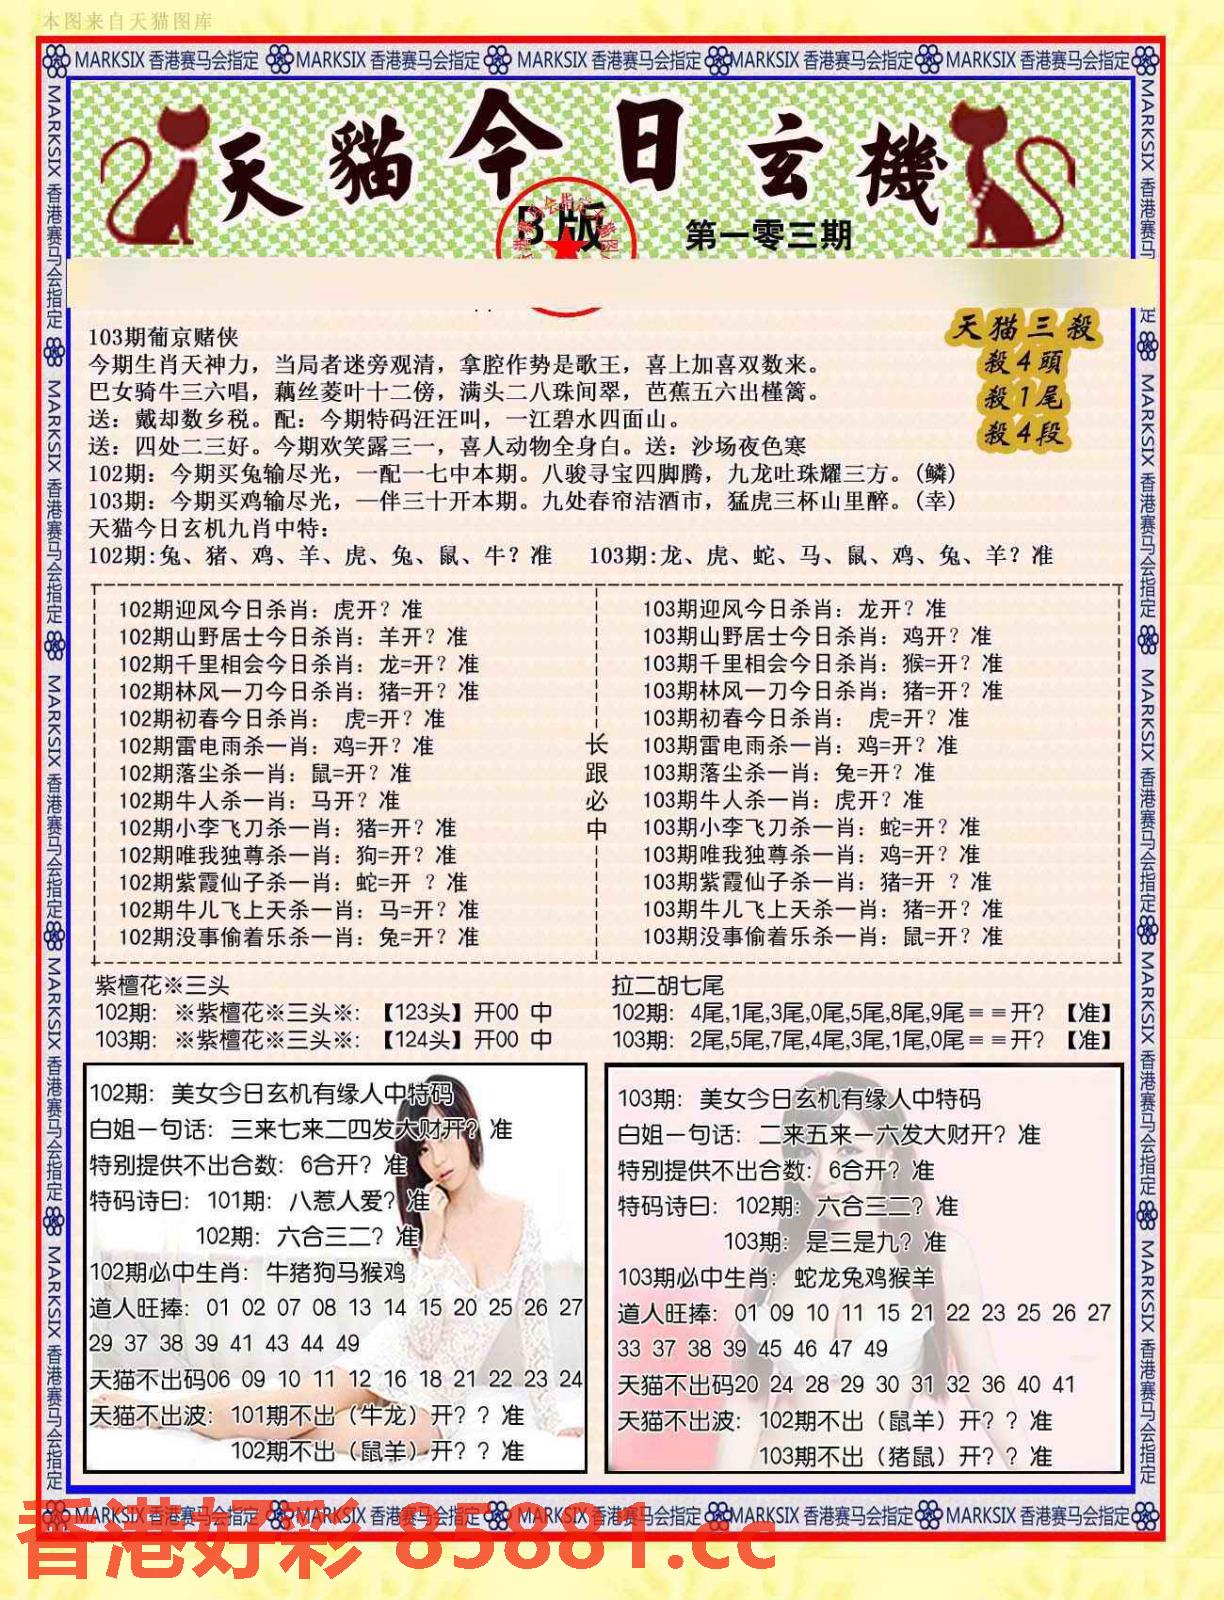 本图来自天猫图库
MARKSIX 香港赛马会指定 MARKSIX 香港赛马会指定 MARKSIX 香港赛马会指定 MARKSIX 香港赛马会指定 MARKSIX 香港赛马会指定
天貓今日玄機
B版
第一零三期
天猫三殺
殺4頭
殺1尾
殺4段
103期葡京赌侠
今期生肖天神力，当局者迷旁观清，拿腔作势是歌王，喜上加喜双数来。
巴女骑牛三六唱，藕丝菱叶十二傍，满头二八珠间翠，芭蕉五六出槿篱。
送：戴却数乡税。配：今期特码汪汪叫，一江碧水四面山。
送：四处二三好。今期欢笑露三一，喜人动物全身白。送：沙场夜色寒
102期：今期买兔输尽光，一配一七中本期。八骏寻宝四脚腾，九龙吐珠耀三方。(鳞)
103期：今期买鸡输尽光，一伴三十开本期。九处春帘洁酒市，猛虎三杯山里醉。(幸)
天猫今日玄机九肖中特：
102期:兔、猪、鸡、羊、虎、兔、鼠、牛？准 103期:龙、虎、蛇、马、鼠、鸡、兔、羊？准
102期迎风今日杀肖：虎开？准
102期山野居士今日杀肖：羊开？准
102期千里相会今日杀肖：龙=开？准
102期林风一刀今日杀肖：猪=开？准
102期初春今日杀肖： 虎=开？准
102期雷电雨杀一肖：鸡=开？准
102期落尘杀一肖：鼠=开？准
102期牛人杀一肖：马开？准
102期小李飞刀杀一肖：猪=开？准
102期唯我独尊杀一肖：狗=开？准
102期紫霞仙子杀一肖：蛇=开 ？准
102期牛儿飞上天杀一肖：马=开？准
102期没事偷着乐杀一肖：兔=开？准
长跟必中
103期迎风今日杀肖：龙开？准
103期山野居士今日杀肖：鸡开？准
103期千里相会今日杀肖：猴=开？准
103期林风一刀今日杀肖：猪=开？准
103期初春今日杀肖： 虎=开？准
103期雷电雨杀一肖：鸡=开？准
103期落尘杀一肖：兔=开？准
103期牛人杀一肖：虎开？准
103期小李飞刀杀一肖：蛇=开？准
103期唯我独尊杀一肖：鸡=开？准
103期紫霞仙子杀一肖：猪=开 ？准
103期牛儿飞上天杀一肖：猪=开？准
103期没事偷着乐杀一肖：鼠=开？准
紫檀花※三头
102期：※紫檀花※三头※：【123头】开00 中
103期：※紫檀花※三头※：【124头】开00 中
拉二胡七尾
102期：4尾,1尾,3尾,0尾,5尾,8尾,9尾≡≡开？【准】
103期：2尾,5尾,7尾,4尾,3尾,1尾,0尾≡≡开？【准】
102期：美女今日玄机有缘人中特码
白姐一句话：三来七来二四发大财开？准
特别提供不出合数：6合开？准
特码诗曰：101期：八惹人爱？准
102期：六合三二？准
102期必中生肖：牛猪狗马猴鸡
道人旺捧：01 02 07 08 13 14 15 20 25 26 27
29 37 38 39 41 43 44 49
天猫不出码06 09 10 11 12 16 18 21 22 23 24
天猫不出波：101期不出（牛龙）开？？准
102期不出（鼠羊）开？？准
103期：美女今日玄机有缘人中特码
白姐一句话：二来五来一六发大财开？准
特别提供不出合数：6合开？准
特码诗曰：102期：六合三二？准
103期：是三是九？准
103期必中生肖：蛇龙兔鸡猴羊
道人旺捧：01 09 10 11 15 21 22 23 25 26 27
33 37 38 39 45 46 47 49
天猫不出码20 24 28 29 30 31 32 36 40 41
天猫不出波：102期不出（鼠羊）开？？准
103期不出（猪鼠）开？？准
MARKSIX 香港赛马会指定 MARKSIX 香港赛马会指定 MARKSIX 香港赛马会指定 MARKSIX 香港赛马会指定 MARKSIX 香港赛马会指定
香港好彩 85881.cc